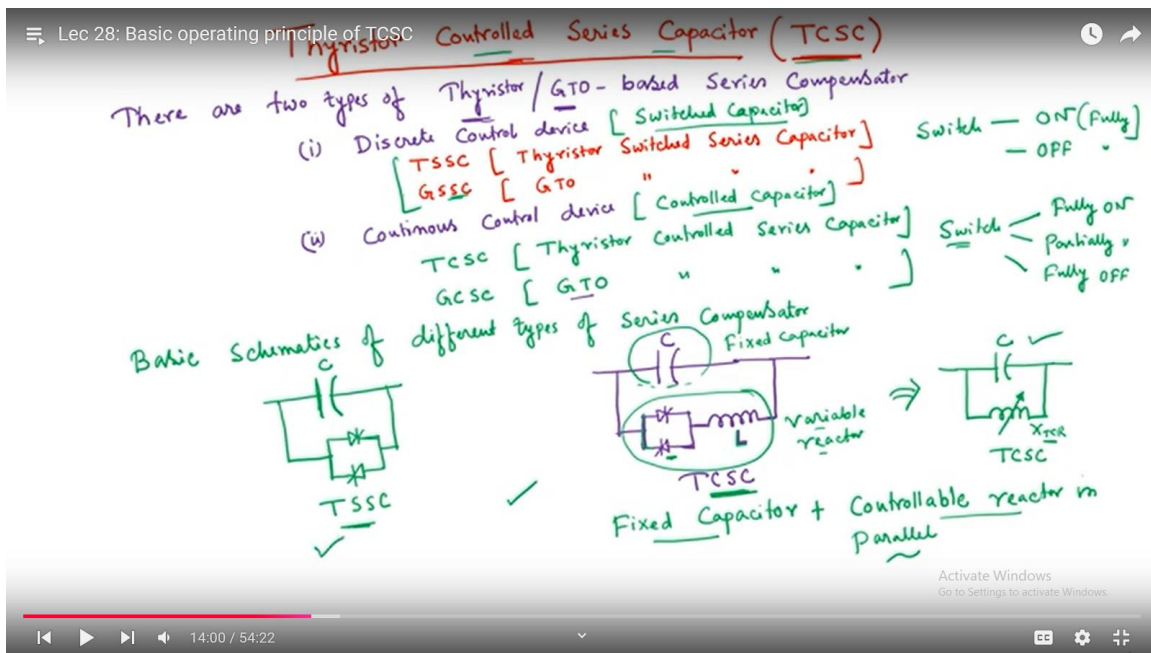 Lec 28: Basic operating principle of TCSC
Thyristor Controlled Series Capacitor (TCSC)
There are two types of Thyristor/GTO-based Series Compensator
(i) Discrete Control device [Switched Capacitor]
Switch — ON (Fully]
— OFF "
TSSC [Thyristor Switched Series Capacitor]
GSSC [GTO " " "]
(ii) Continous Control device [Controlled Capacitor]
TCSC [Thyristor Controlled Series Capacitor]
GCSC [GTO " " "]
Switch
Fully ON
Partially "
Fully OFF
Basic Schematics of different types of Series Compensator
C
TSSC
C
Fixed Capacitor
L
variable
reactor
TCSC
⇒
C
XTCR
TCSC
Fixed Capacitor + Controllable reactor in
Parallel
Activate Windows
Go to Settings to activate Windows.
14:00 / 54:22
CC